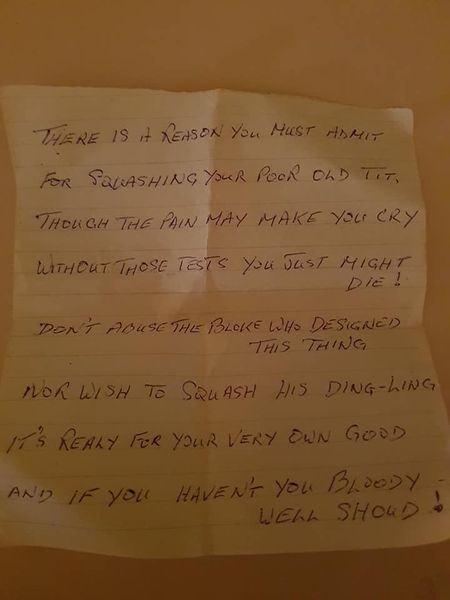 THERE IS A REASON YOU MUST ADMIT
FOR SQUASHING YOUR POOR OLD TIT.
THOUGH THE PAIN MAY MAKE YOU CRY
WITHOUT THOSE TESTS YOU JUST MIGHT
DIE!
DON'T ABUSE THE BLOKE WHO DESIGNED
THIS THING
NOR WISH TO SQUASH HIS DING-LING
IT'S REALY FOR YOUR VERY OWN GOOD
AND IF YOU HAVEN'T YOU BLOODY
WELL SHOUD!